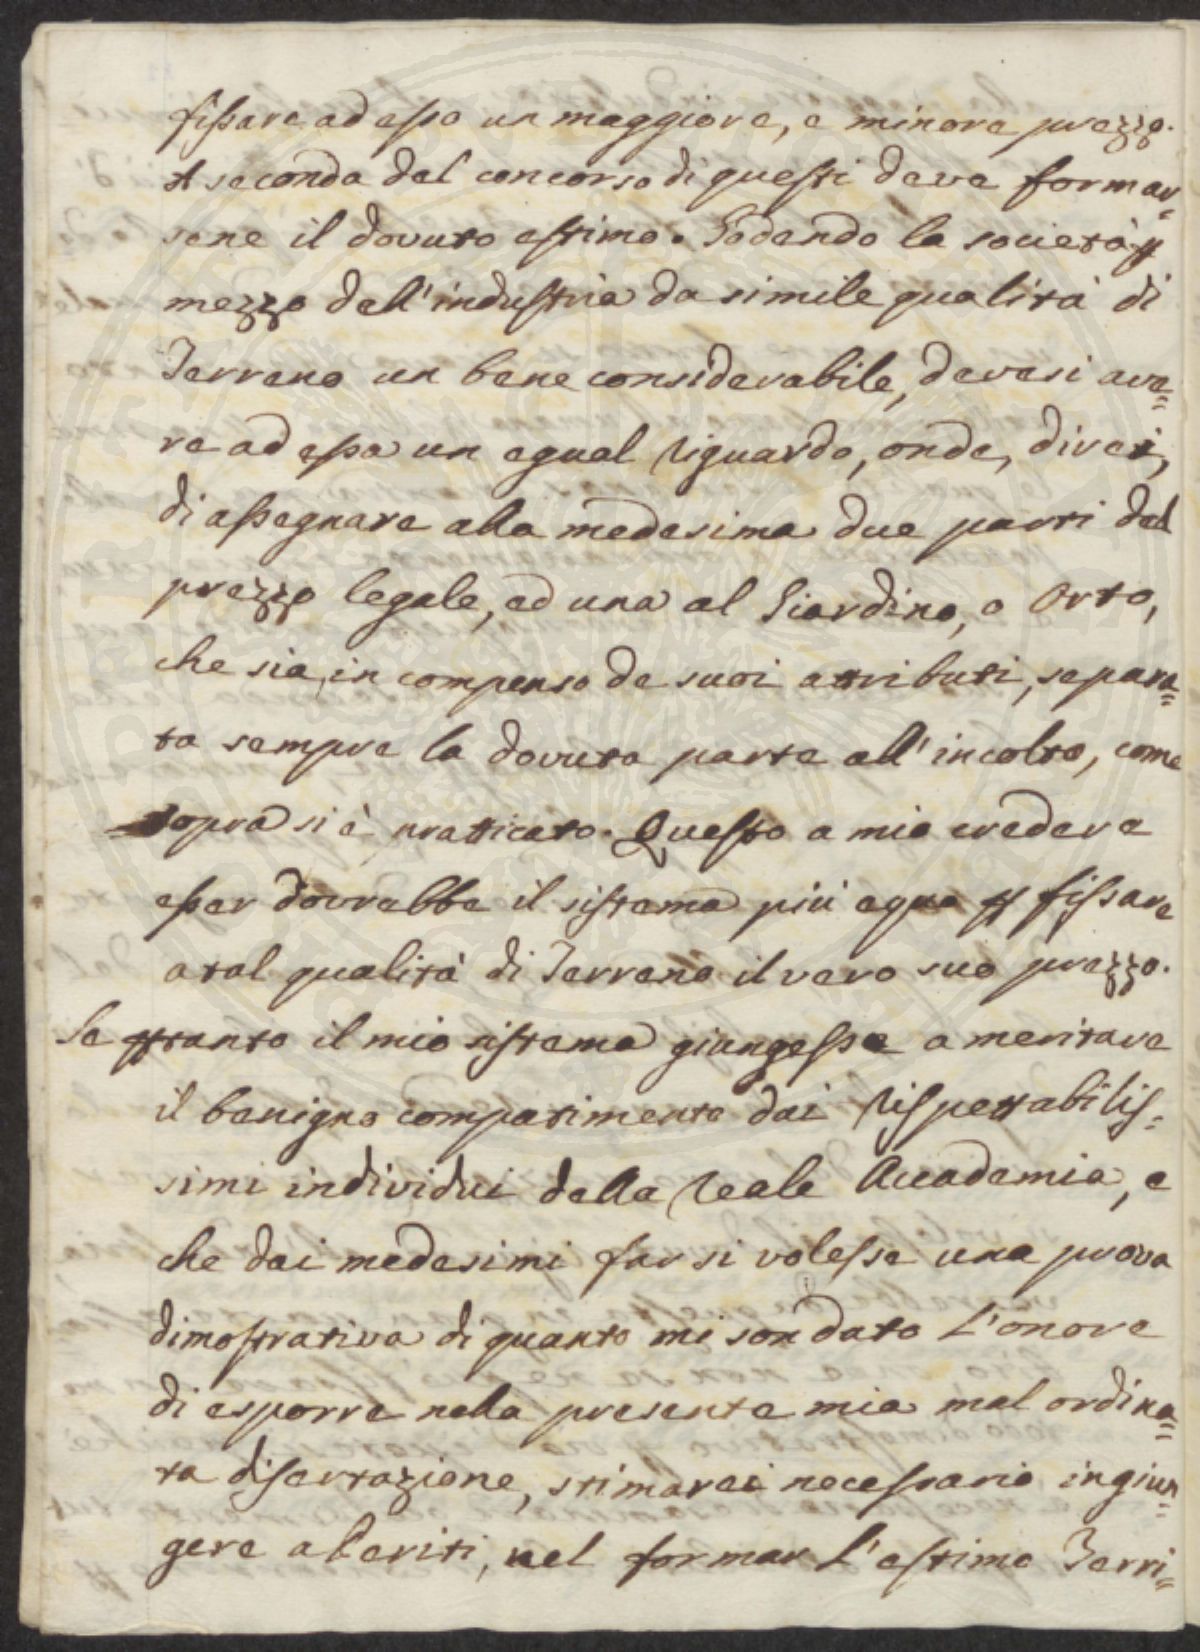 fissare ad esso un maggiore, e minore prezzo.
A seconda del concorso di questi deve formar=
sene il dovuto estimo. Godendo la società p
mezzo dell'industria da simile qualità di
Terreno un bene considerabile, devesi ave=
re ad essa un egual riguardo, onde, direi,
di assegnare alla medesima due parti del
prezzo legale, ed una al Giardino, o Orto,
che sia, in compenso de suoi attributi, separa=
ta sempre la dovuta parte all'incolto, come
sopra si è pratticato. Questo a mio credere
esser dovrebbe il sistema più equo p fissare
a tal qualità di Terreno il vero suo prezzo.
Se ptanto il mio sistema giungesse a meritare
il benigno compatimento dai rispettabilis=
simi individui della reale Accademia, e
che dai medesimi far si volesse una prova
dimostrativa di quanto mi son dato l'onore
di esporre nella presente mia mal ordina=
ta disertazione, stimarei necessario ingiun=
gere a Periti, nel formar l'estimo Terri=